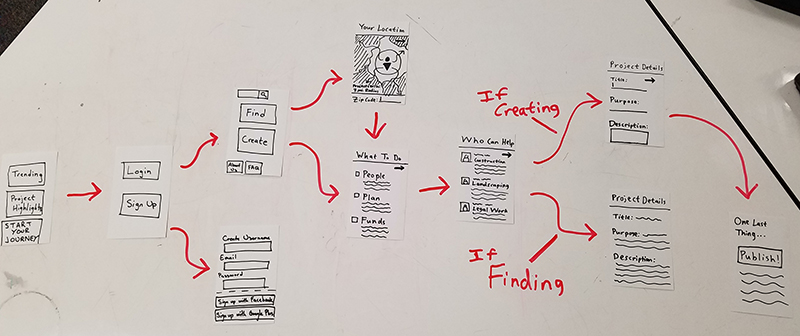 Trending
Project
Highlights
START
YOUR
JOURNEY
Login
Sign Up
Find
Create
About
Us
FAQ
Create Username
Email
Password
Sign up with Facebook
Sign up with Google Plus
Your Location
Your Radius
Zip Code:
What To Do
People
Plan
Funds
Who Can Help
Construction
Landscaping
Legal Work
If
Creating
If
Finding
Project Details
Title:
Purpose:
Description:
Project Details
Title:
Purpose:
Description:
One Last
Thing...
Publish!